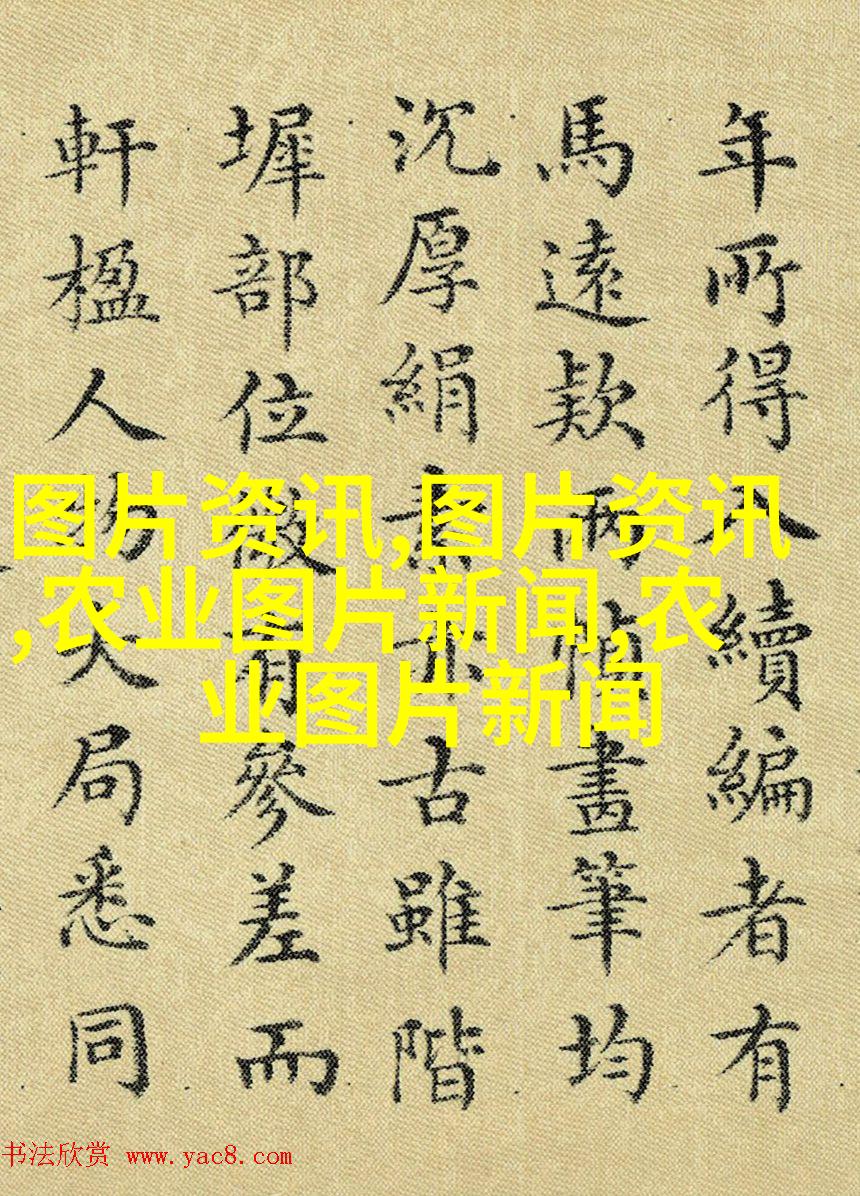 年所得入續編者有
馬遠款兩幀畫筆均
沉厚絹素亦古雖階
墀部位微有參差而
軒楹人物大局悉同
图片资讯,图片资讯
,农业图片新闻,农
业图片新闻
书法欣赏 www.yac8.com